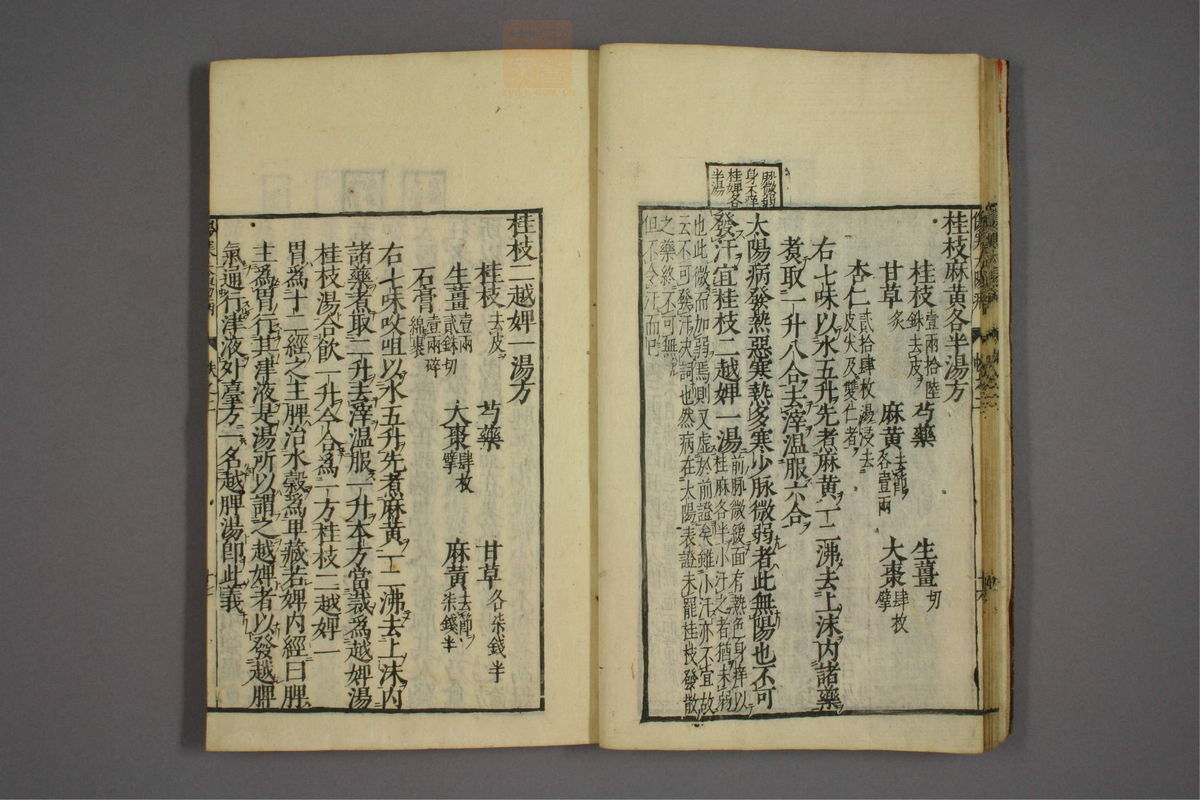 桂枝麻黃各半湯方
桂枝壹兩拾陸銖去皮 芍藥 生薑切
甘草炙 麻黃去節各壹兩 大棗肆枚擘
杏仁貳拾肆枚湯浸去皮尖及雙仁者
右七味以水五升先煮麻黃一二沸去上沫内諸藥
煮取一升八合去滓温服六合
脉微弱
身不痒
桂婢各
半湯
太陽病發熱惡寒熱多寒少脉微弱者此無陽也不可
發汗宜桂枝二越婢一湯前脉微緩面有熱色身痒以
桂麻各半小汗之者猶未弱
也此微而加弱焉則又虛於前證矣雖小汗亦不宜故
云不可發汗決詞也然病在太陽表證未罷桂枝發散
之藥終不可無
但不令汗而
桂枝二越婢一湯方
桂枝去皮 芍藥 甘草各柒錢半
生薑壹兩貳銖切 大棗肆枚擘 麻黃去節柒錢半
石膏壹兩碎綿裹
右七味㕮咀以水五升先煮麻黃一二沸去上沫内
諸藥煮取二升去滓温服一升本方當裁爲越婢湯
桂枝湯合飲一升今合爲一方桂枝二越婢一
胃爲十二經之主脾治水穀爲卑藏若婢内經曰脾
主爲胃行其津液是湯所以謂之越婢者以發越脾
氣通行津液外臺方一名越脾湯即此義